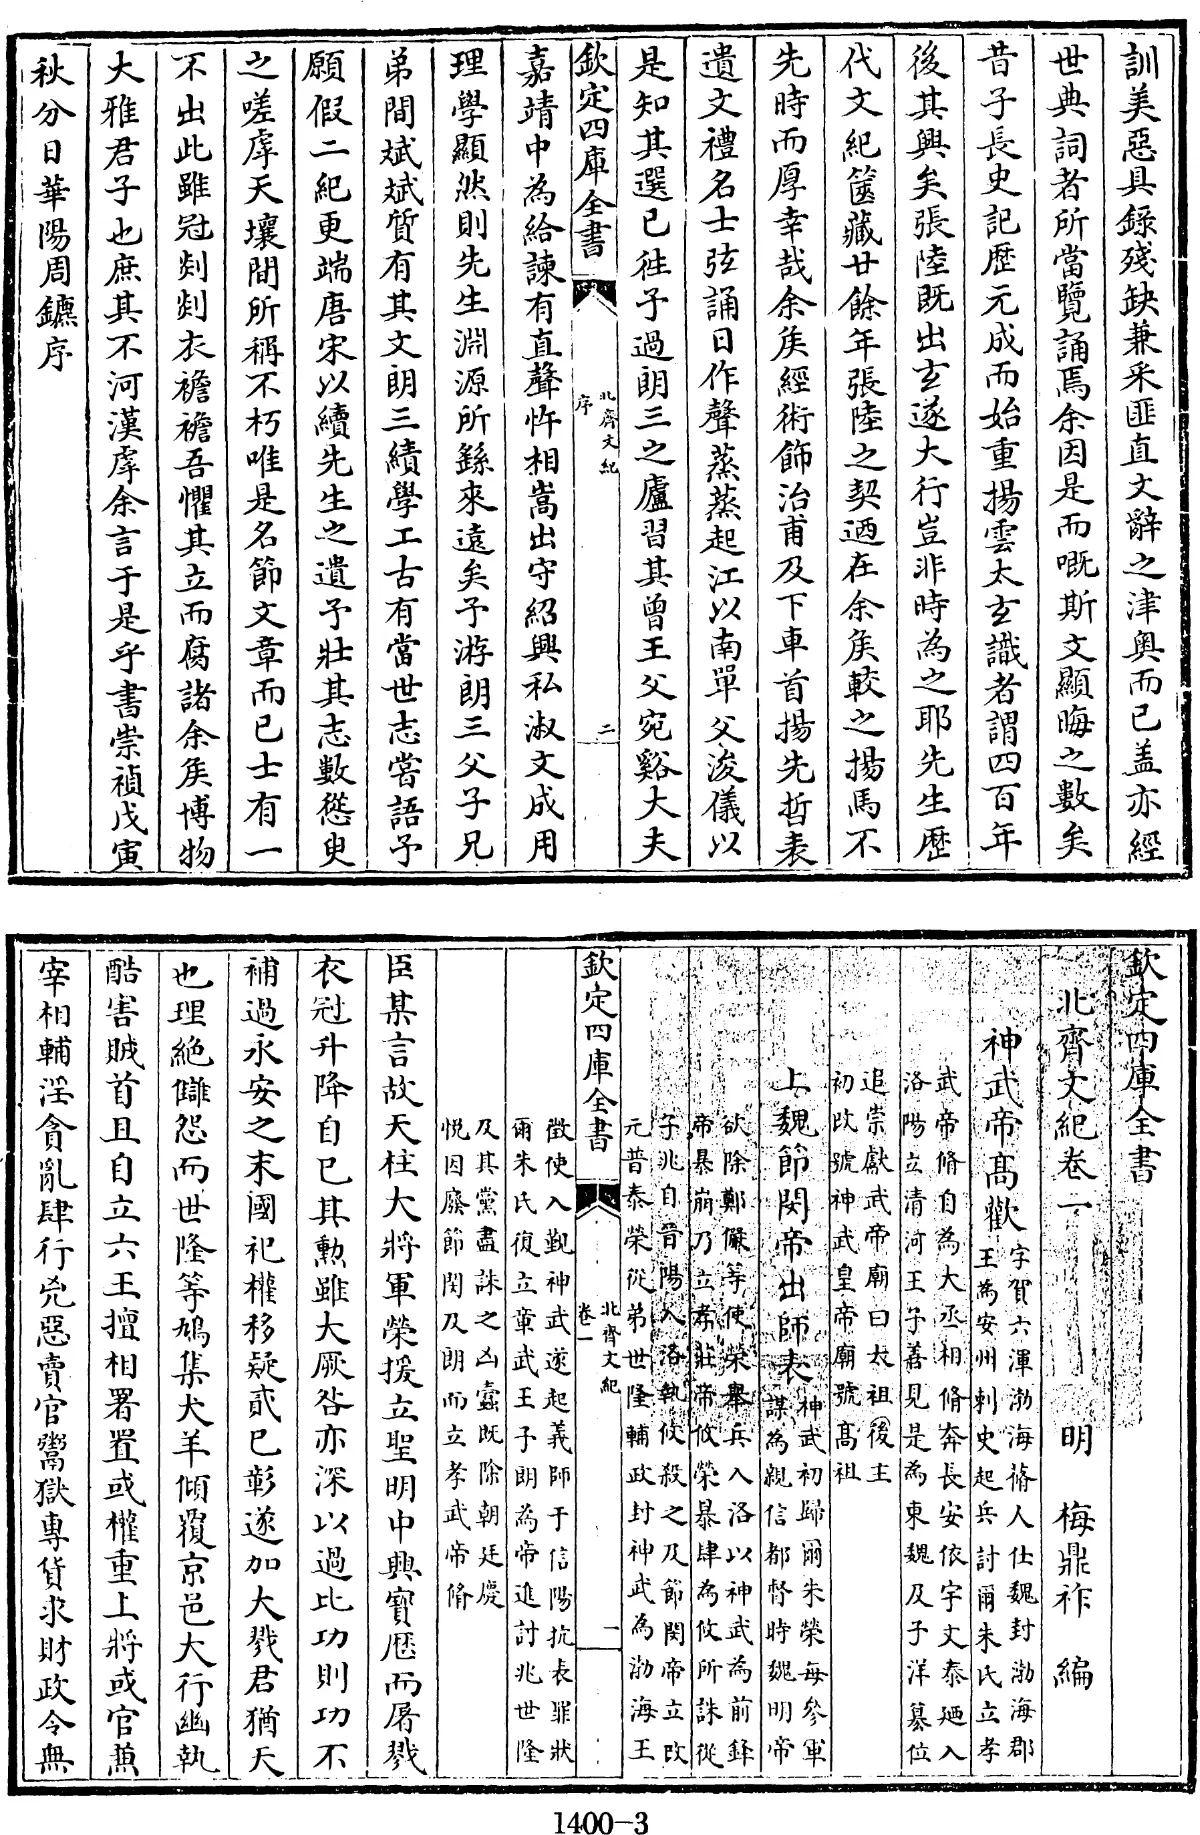 訓美惡具錄殘缺兼采匪直文辭之津奥而已盖亦經
世典詞者所當覽誦焉余因是而嘅斯文顯晦之數矣
昔子長史記歴元成而始重揚雲太𤣥識者謂四百年
後其興矣張陸既出𤣥遂大行豈非時為之耶先生歴
代文紀篋藏廿餘年張陸之契迺在余矦較之揚馬不
先時而厚幸哉余矦經術飾治甫及下車首揚先哲表
遺文禮名士弦誦日作聲蒸蒸起江以南單父浚儀以
是知其選已徃予過朗三之廬習其曾王父宛谿大夫
欽定四庫全書
北齊文紀
序
二
嘉靖中為給諫有直聲忤相嵩出守紹興私淑文成用
理學顯然則先生淵源所繇來遠矣予游朗三父子兄
弟間斌斌質有其文朗三績學工古有當世志嘗語予
願假二紀更端唐宋以續先生之遺予壯其志數慫臾
之嗟虖天壤間所稱不朽唯是名節文章而已士有一
不出此雖冠剡剡衣襜襜吾懼其立而腐諸余矦博物
大雅君子也庶其不河漢虖余言于是乎書崇禎戊寅
秋分日華陽周鑣序
欽定四庫全書
北齊文紀卷一
明 梅鼎祚 編
神武帝髙歡
字賀六渾渤海蓚人仕魏封渤海郡
王為安州刺史起兵討爾朱氏立孝
武帝脩自為大丞相脩奔長安依宇文泰廼入
洛陽立清河王子善見是為東魏及子洋簒位
追崇獻武帝廟曰太祖後主
初改號神武皇帝廟號髙祖
上魏節閔帝出師表
神武初歸爾朱榮每參軍
謀為親信都督時魏明帝
欲除鄭儼等使榮舉兵入洛以神武為前鋒
帝暴崩乃立孝莊帝攸榮暴肆為攸所誅從
子兆自晉陽入洛執攸殺之及節閔帝立改
元普泰榮從弟世隆輔政封神武為渤海王
欽定四庫全書
北齊文紀
卷一
一
徴使入覲神武遂起義師于信陽抗表罪狀
爾朱氏復立章武王子朗為帝進討兆世隆
及其黨盡誅之凶蠧既除朝廷慶
悦因廢節閔及朗而立孝武帝脩
臣某言故天柱大將軍榮援立聖明中興寳厯而屠戮
衣冠升降自已其勲雖大厥咎亦深以過比功則功不
補過永安之末國祀權移疑貳已彰遂加大戮君猶天
也理絶讎怨而世隆等鳩集犬羊傾覆京邑大行幽執
酷害賊首且自立六王擅相署置或權重上將或官兼
宰相輔淫貪亂肆行兇惡賣官鬻獄專貨求財政令無
1400-3